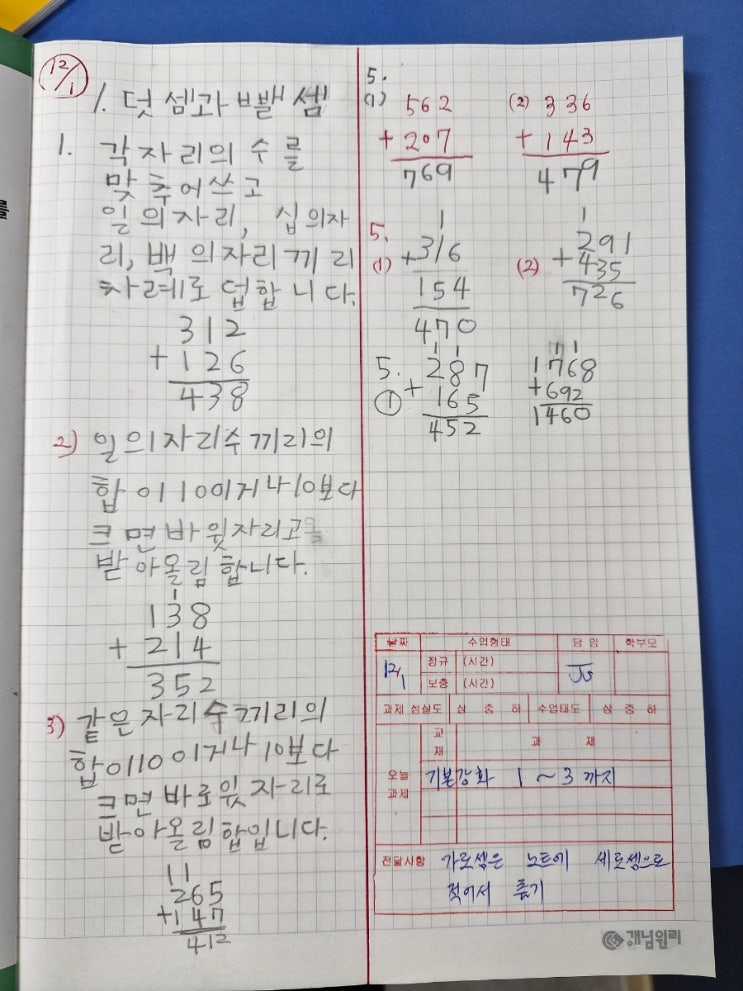 12/1
1. 덧셈과 뺄셈
1. 각자리의 수를
맞추어쓰고
일의자리, 십의자
리, 백의자리끼리
차례로 덥합니다.
312
+126
438
2) 일의자리수끼리의
합이10이거나10보다
크면바윗자리고올
받아올림합니다.
1
138
+214
352
3) 같은자리수끼리의
합이10이거나10보다
크면바로윗자리로
받아올림합입니다.
11
265
+147
412
5.
(1) 562
+207
769
(2) 336
+143
479
5.
1
(1) +316
154
470
1
(2) 291
+435
726
5.
11
① 287
+165
452
11
1768
+692
1460
날짜 수업형태 담임 학부모
12/1 정규 (시간)
보충 (시간)
과제 성실도 상 중 하 수업태도 상 중 하
오늘 과제 교재 과제
기본강화 1~3까지
전달사항 가로셈은 노트에 세로셈으로
적어서 풀기
개념원리